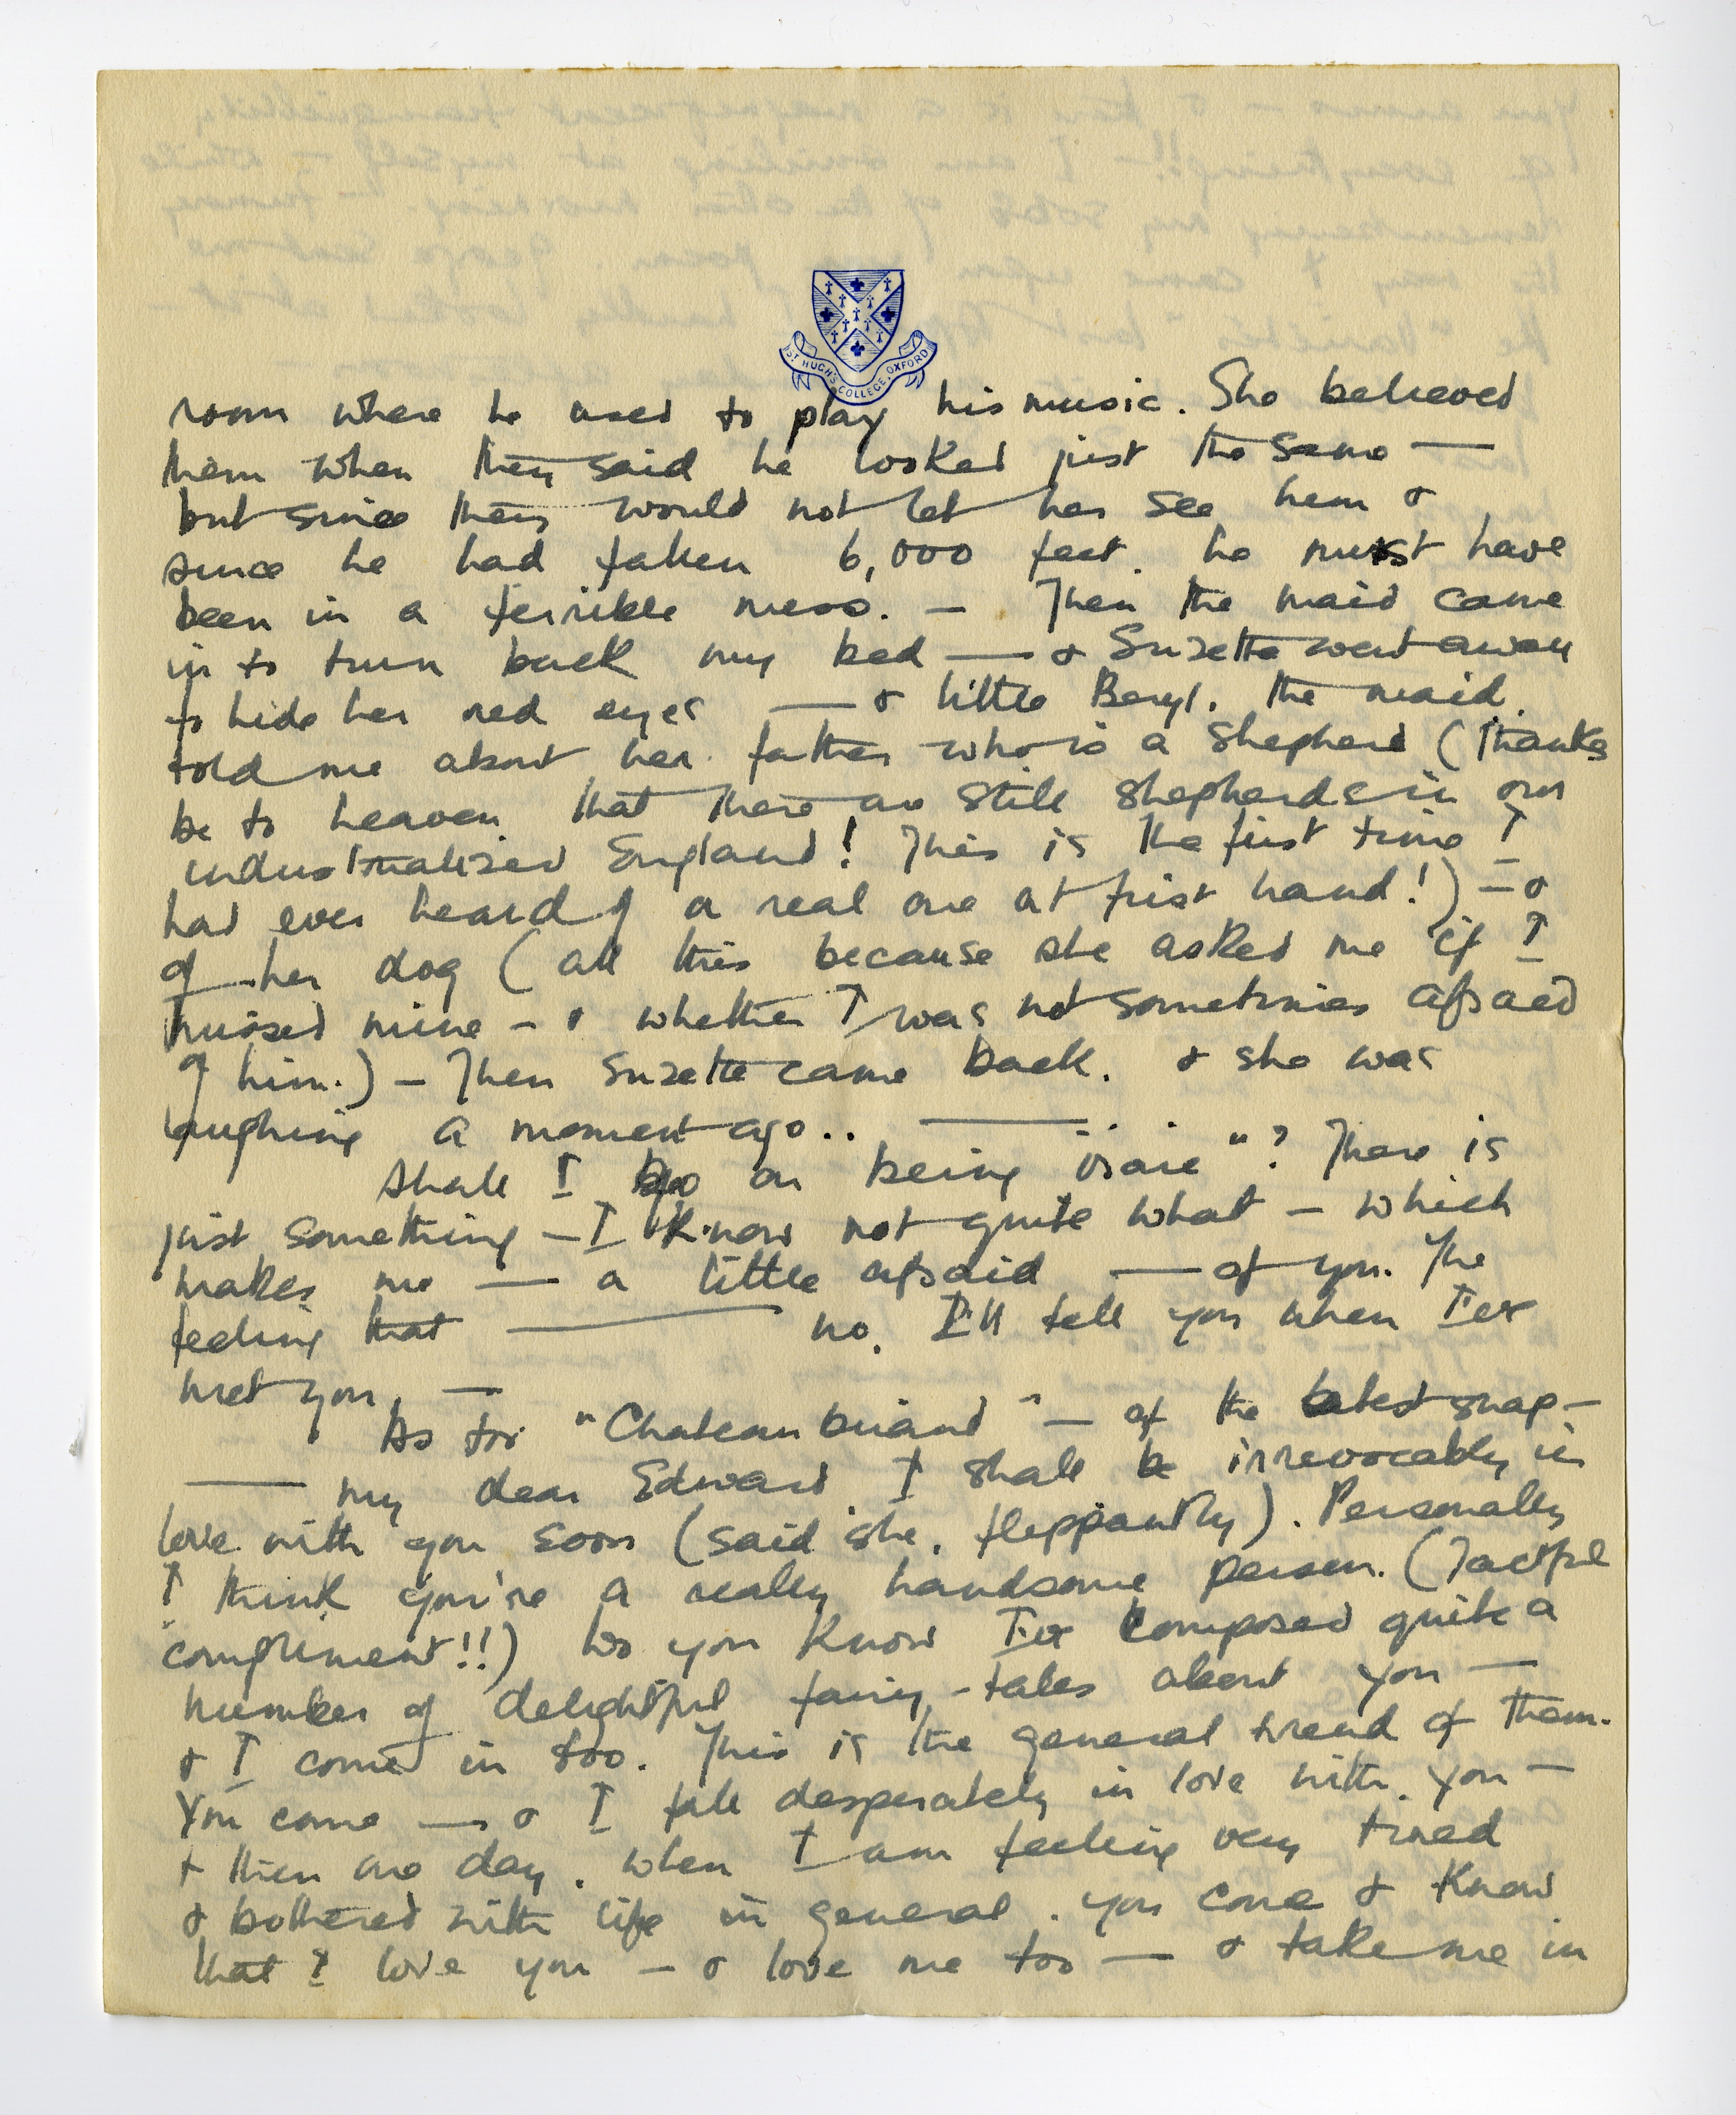 ST HUGH'S COLLEGE, OXFORD
room where he used to play his music. She believed
them when they said he looked just the same —
but since they would not let her see him &
since he had fallen 6,000 feet, he must have
been in a terrible mess. — Then the maid came
in to turn back my bed — & Suzette went away
to hide her red eyes — & little Beryl, the maid,
told me about her father who is a shepherd (thanks
be to heaven that there are still shepherds in our
industrialised England! This is the first time I
had ever heard of a real one at first hand!) — &
of her dog (all this because she asked me if I
missed mine — & whether I was not sometimes afraid
of him.) — Then Suzette came back, & she was
laughing a moment ago.. —
Shall I go on being "? There is
just something — I know not quite what — which
makes me — a little afraid — of you. The
feeling that — no, I'll tell you when I've
met you. —
As for "Chateaubriand" — of the latest snap —
— my dear Edward, I shall be irrevocably in
love with you soon (said she, flippantly). Personally
I think you're a really handsome person. (Tactful
compliment!!) Do you know I've composed quite a
number of delightful fairy-tales about you —
& I come in too. This is the general trend of them.
You come — & I fall desperately in love with you —
& then one day, when I am feeling very tired
& bothered with life in general, you come & know
that I love you — & love me too — & take me in